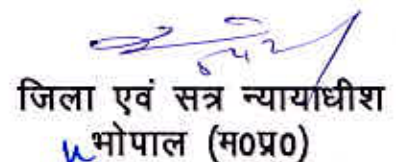 जिला एवं सत्र न्यायाधीश
भोपाल (म0प्र0)